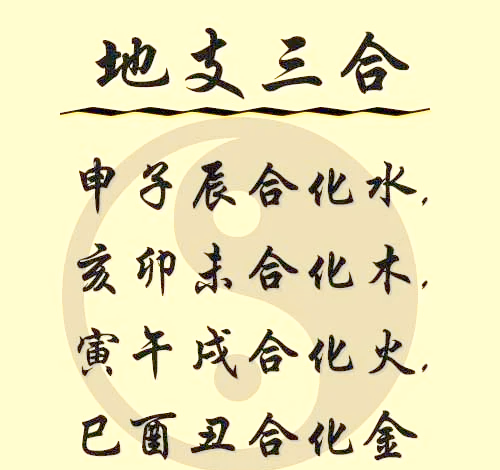 地支三合
申子辰合化水,
亥卯未合化木,
寅午戌合化火,
巳酉丑合化金